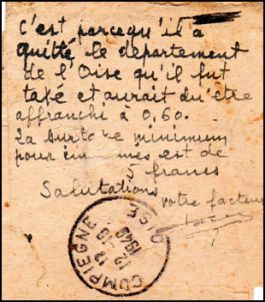 c'est parcequ'il a
quitté le département
de l'Oise qu'il fut
taxé et aurait dû être
affranchi à 0,60.
La surtaxe minimum
pour est de
5 francs
Salutations
votre facteur
COMPIEGNE
OISE
1940